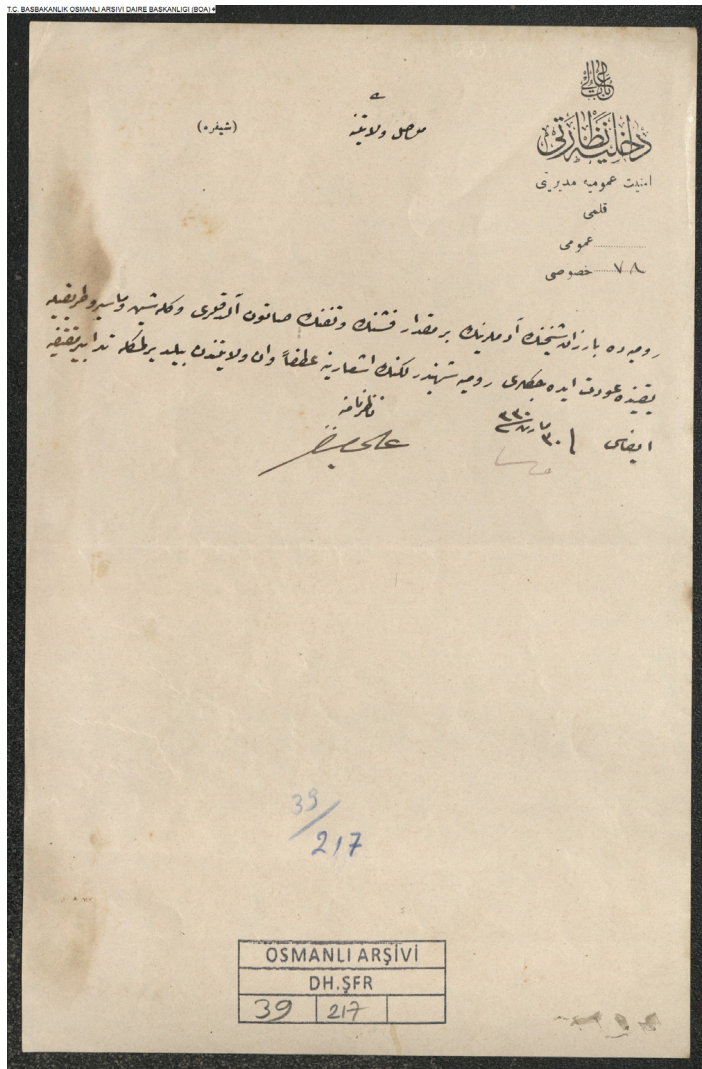 T.C. BASBAKANLIK OSMANLI ARSIVI DAIRE BASKANLIGI (BOA)
باب عالی
داخلیه نظارتی
امنیت عمومیه مدیریتی
قلمی
عمومی
خصوصی ٧٨
موصل ولایتنه
(شیفره)
رومیه ده بارزان شیخنك آدملرینك بر مقدار فشنك وتفنك صاتون آلدقلری و كله شین
عودت ایده جكلری رومیه شهبندرلكنك اشعارینه عطفاً وان ولایتندن بیلدیرلمكله تدابیر
ایفاسی
٣٠ مارت ٣٣٠
ناظر نامنه
علی
39/217
OSMANLI ARŞİVİ
DH.ŞFR
39 217